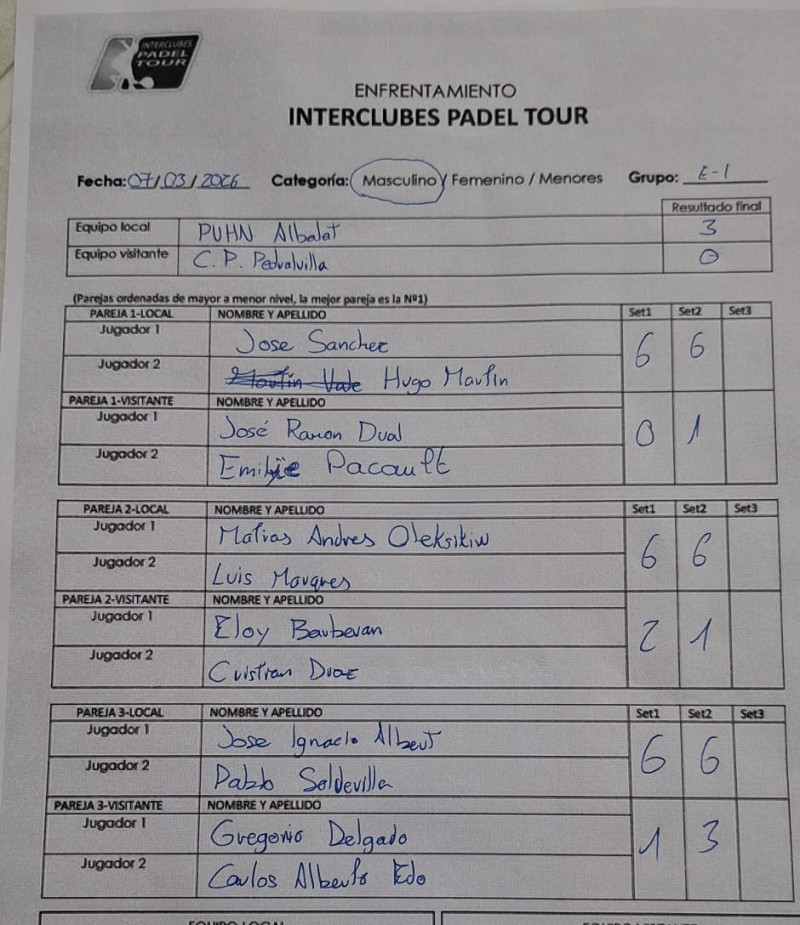 INTERCLUBES
PADEL
TOUR
ENFRENTAMIENTO
INTERCLUBES PADEL TOUR
Fecha: 07/03/2026 Categoría: Masculino / Femenino / Menores Grupo: E-1
Resultado final
Equipo local PUHN Albalat 3
Equipo visitante C.P. Pedralvilla 0
(Parejas ordenadas de mayor a menor nivel, la mejor pareja es la Nº1)
PAREJA 1-LOCAL NOMBRE Y APELLIDO Set1 Set2 Set3
Jugador 1 Jose Sanchez 6 6
Jugador 2 Hugo Martin
PAREJA 1-VISITANTE NOMBRE Y APELLIDO
Jugador 1 José Ramon Dual 0 1
Jugador 2 Emilie Pacault
PAREJA 2-LOCAL NOMBRE Y APELLIDO Set1 Set2 Set3
Jugador 1 Matias Andres Oleksikiw 6 6
Jugador 2 Luis Marques
PAREJA 2-VISITANTE NOMBRE Y APELLIDO
Jugador 1 Eloy Barberan 2 1
Jugador 2 Cristian
PAREJA 3-LOCAL NOMBRE Y APELLIDO Set1 Set2 Set3
Jugador 1 Jose Ignacio Albert 6 6
Jugador 2 Pablo Soldevilla
PAREJA 3-VISITANTE NOMBRE Y APELLIDO
Jugador 1 Gregorio Delgado 1 3
Jugador 2 Carlos Alberto Edo